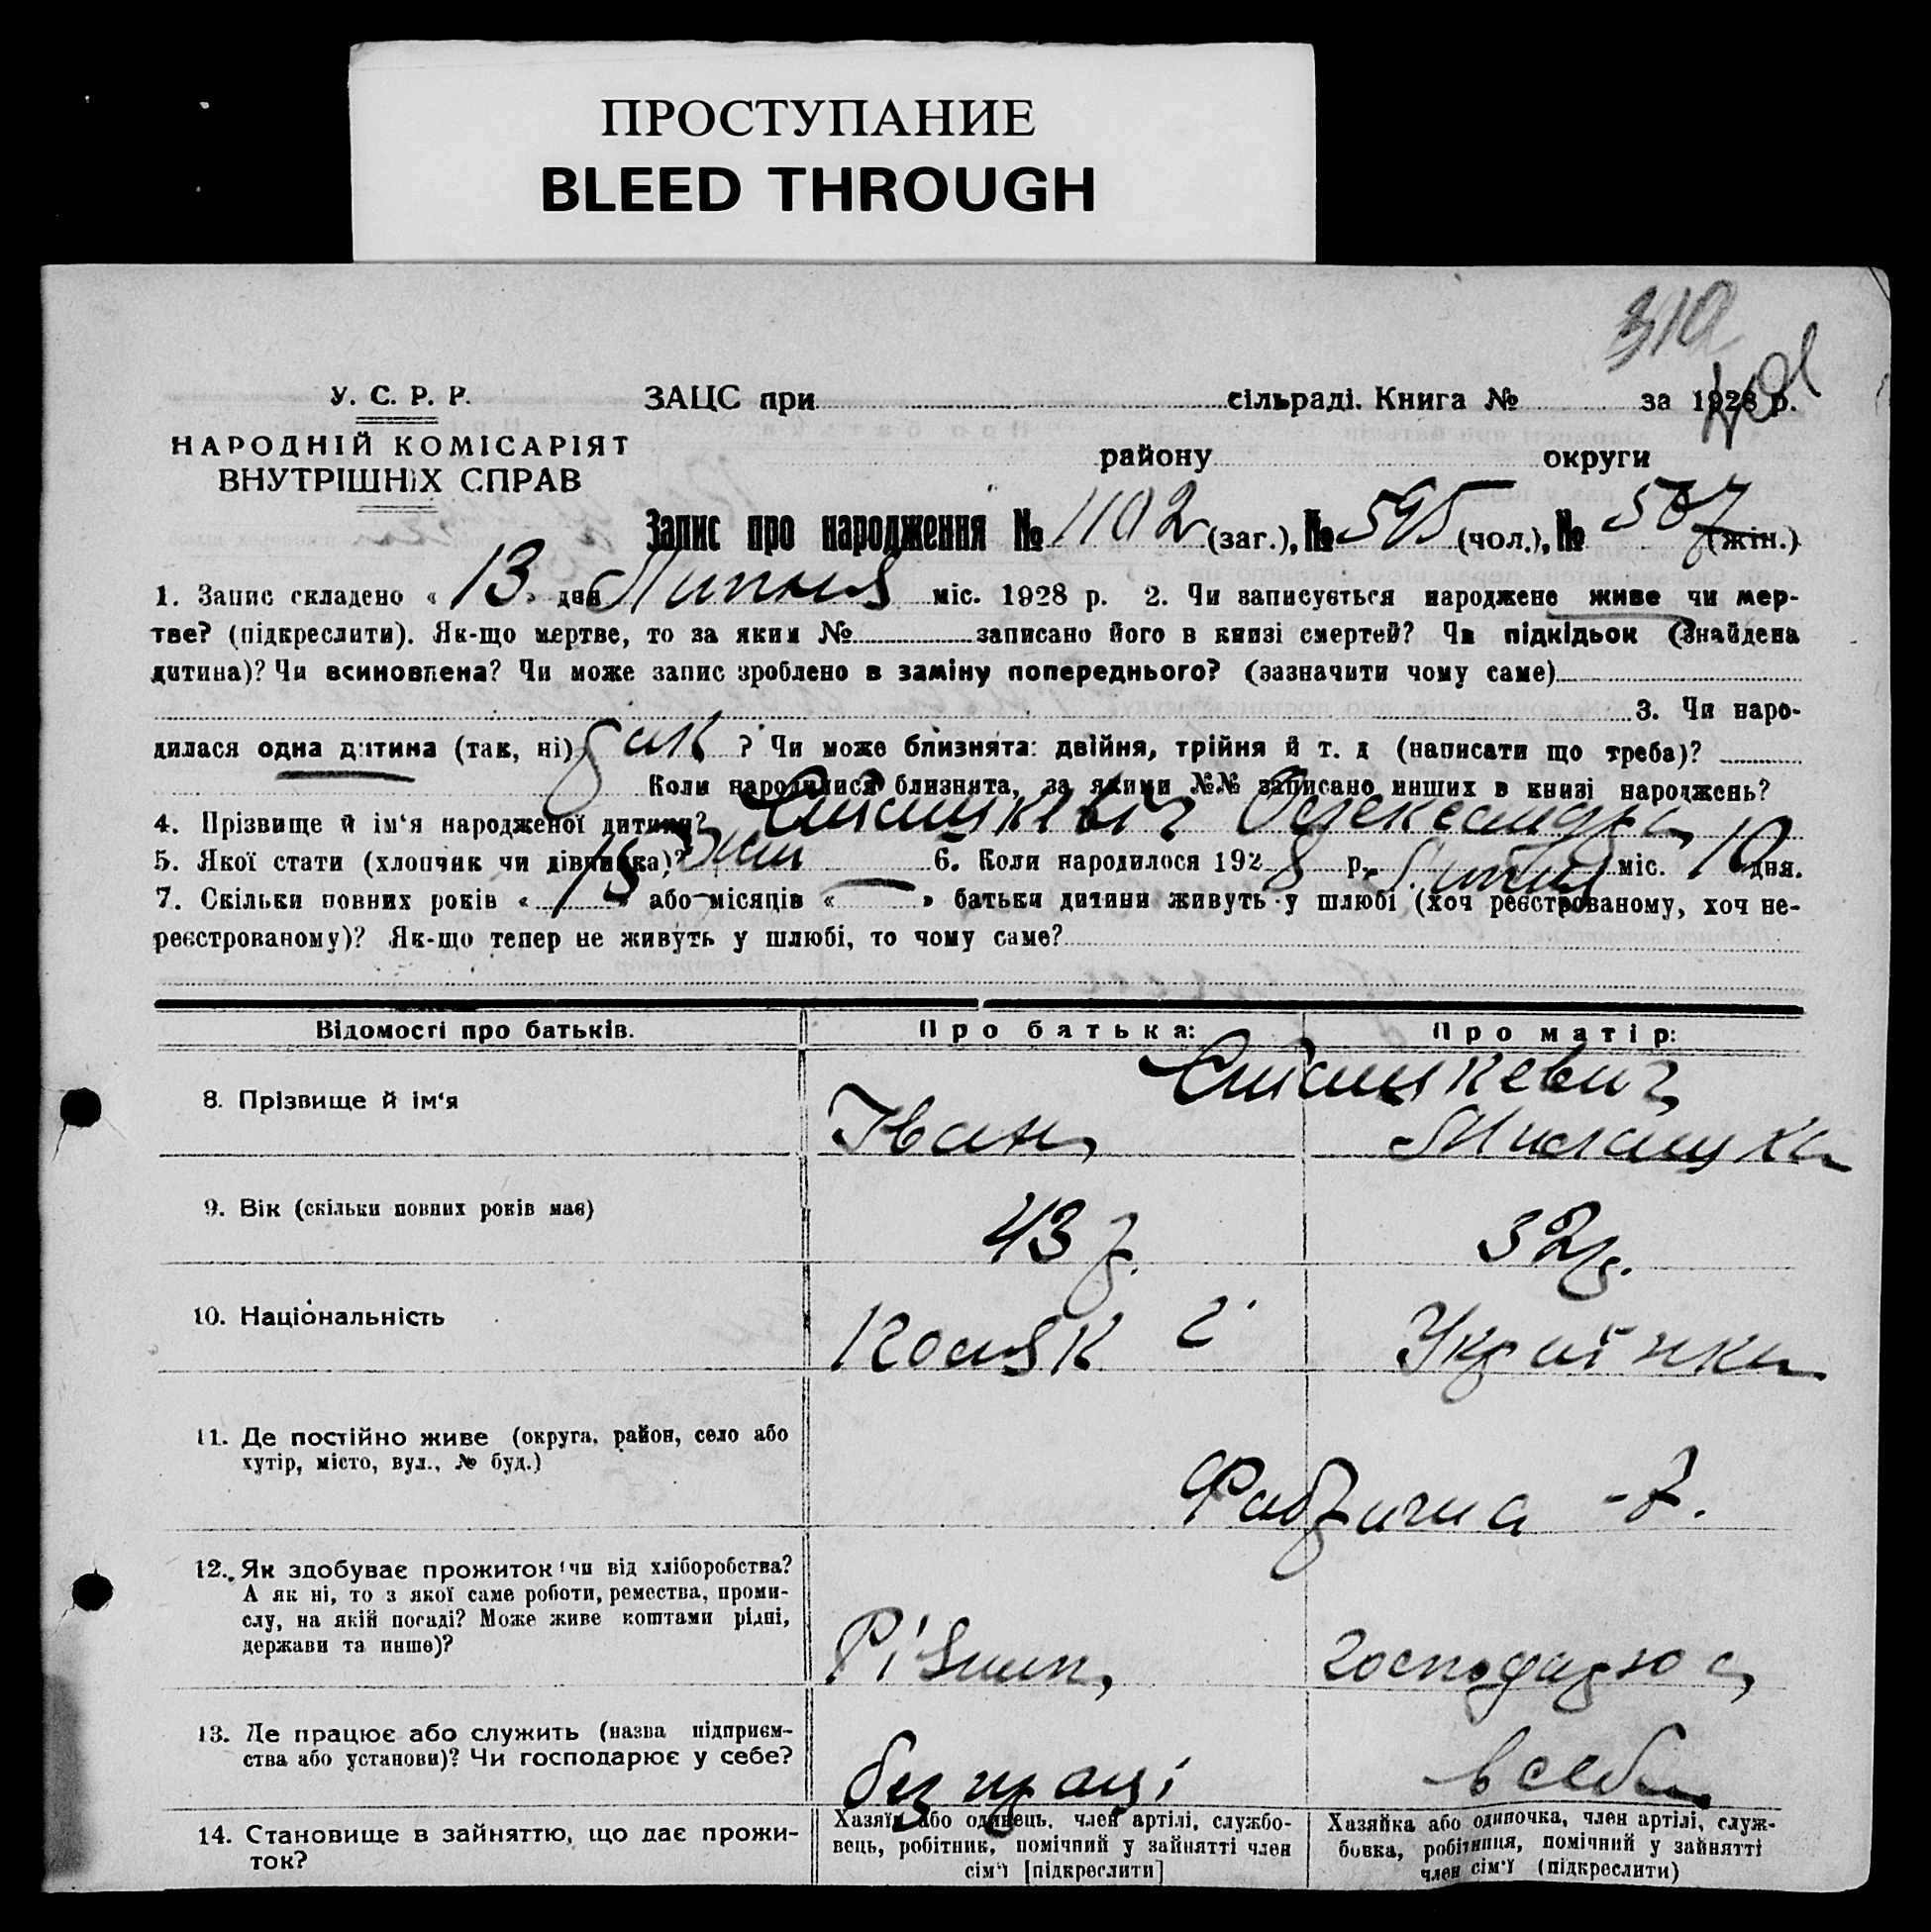 ПРОСТУПАНИЕ
BLEED THROUGH
310
У. С. Р. Р.
НАРОДНІЙ КОМІСАРІЯТ
ВНУТРІШНІХ СПРАВ
ЗАЦС при сільраді. Книга № за 1928 р.
району округи
Запис про народження № 1102 (заг.), № 595 (чол.), № 507 (жін.)
1. Запис складено « 13 » дня Липня міс. 1928 р. 2. Чи записується народжене живе чи мер-
тве? (підкреслити). Як-що мертве, то за яким № записано його в книзі смертей? Чи підкідьок (знайдена
дитина)? Чи всиновлена? Чи може запис зроблено в заміну попереднього? (зазначити чому саме)
3. Чи наро-
дилася одна дитина (так, ні) так ? Чи може близнята: двійня, трійня й т. д (написати що треба)?
Коли народилися близнята, за якими №№ записано инших в книзі народжень?
4. Прізвище й ім‘я народженої дитини? Сташкевич Олександра
5. Якої стати (хлопчик чи дівчинка)? жін 6. Коли народилося 1928 р. Липня міс. 10 дня.
7. Скільки повних років « 13 » або місяців « — » батьки дитини живуть у шлюбі (хоч реєстрованому, хоч не-
реєстрованому)? Як-що тепер не живуть у шлюбі, то чому саме?
Відомості про батьків. Про батька: Про матір:
Сташкевич
8. Прізвище й ім‘я Іван
9. Вік (скільки повних років має) 43 р. 32 р.
10. Національність Поляк Українка
11. Де постійно живе (округа, район, село або
хутір, місто, вул., № буд.)
Фабрична - 7.
12. Як здобуває прожиток чи від хліборобства?
А як ні, то з якої саме роботи, ремества, проми-
слу, на якій посаді? Може живе коштами рідні,
держави та инше)?
господарює
13. Де працює або служить (назва підприєм-
ства або установи)? Чи господарює у себе?
без праці в себе
14. Становище в зайняттю, що дає прожи-
ток?
Хазяїн або одинець, член артілі, службо-
вець, робітник, помічний у зайнятті член
сім‘ї [підкреслити]
Хазяйка або одиночка, член артілі, служ-
бовка, робітниця, помічний у зайнятті
член сім‘ї (підкреслити)